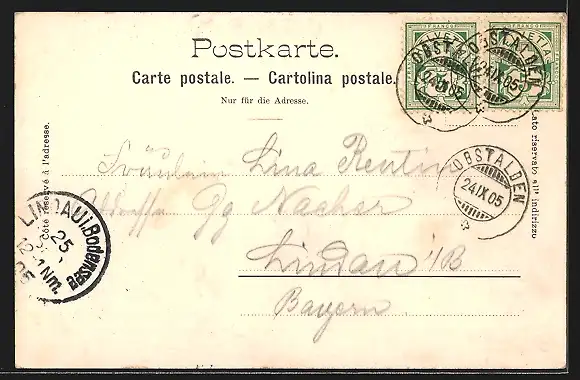 Postkarte.
Carte postale. — Cartolina postale.
Nur für die Adresse.
Côté réservé à l'adresse.
Lato riservato all' indirizzo
FRANCO FRANCO
HELVETIA HELVETIA
OBSTALDEN
24.IX.05
OBSTALDEN
24.IX.05
OBSTALDEN
24.IX.05
Fräulein Lina Rentin
Adresse Gg Nacher
Lindau i/B
Bayern
LINDAU i. Bodensee
25
Nm.
05